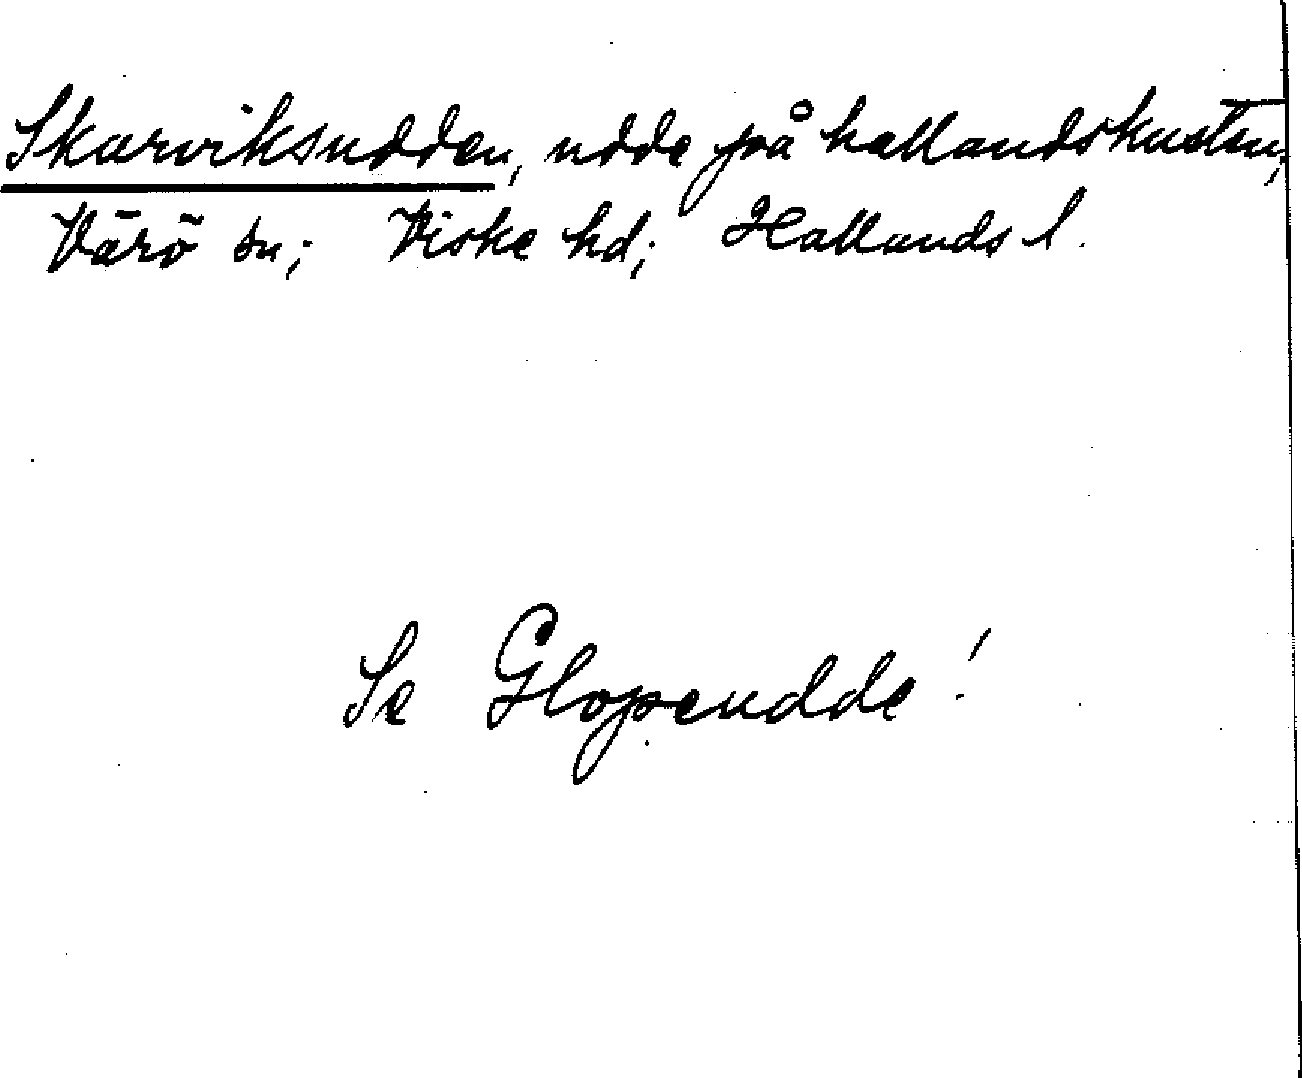 Skarviksudden, udde på hallandskusten,
Värö sn; Viske hd; Hallands l.
Se Glopeudde!